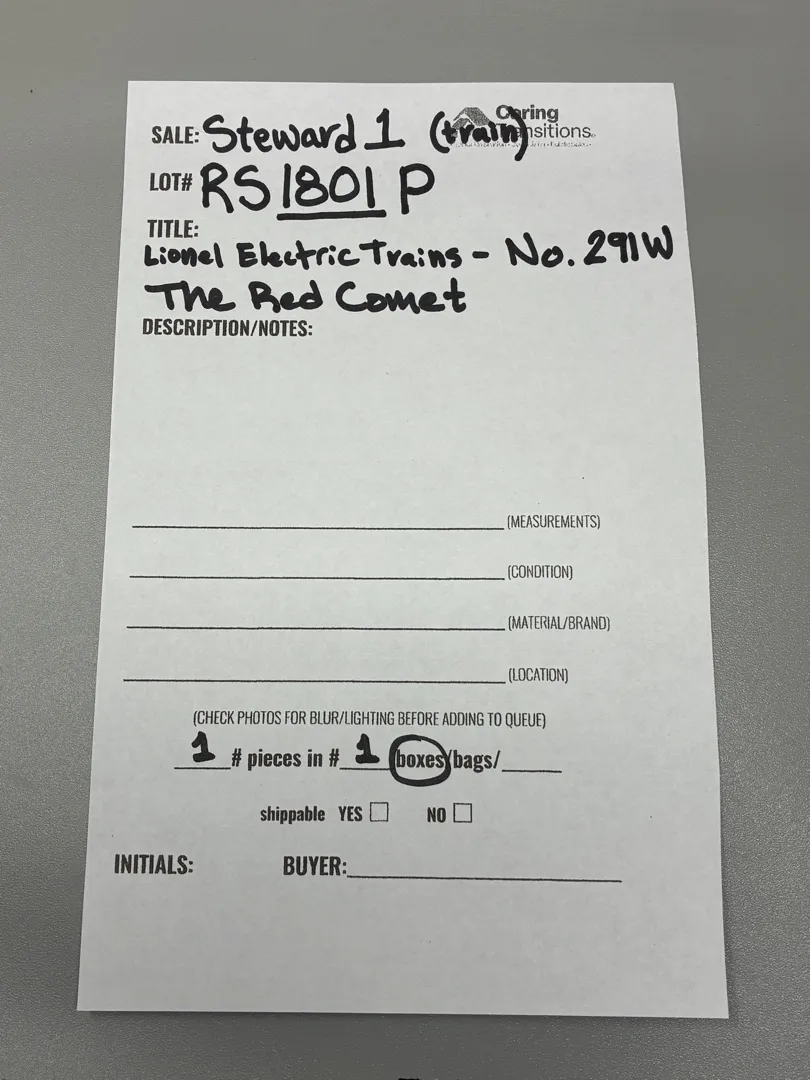 Caring
Transitions
SALE: Steward 1 (train)
LOT# RS 1801 P
TITLE:
Lionel Electric Trains - No. 291W
The Red Comet
DESCRIPTION/NOTES:
(MEASUREMENTS)
(CONDITION)
(MATERIAL/BRAND)
(LOCATION)
(CHECK PHOTOS FOR BLUR/LIGHTING BEFORE ADDING TO QUEUE)
1 # pieces in # 1 boxes/bags/
shippable YES NO
INITIALS: BUYER: